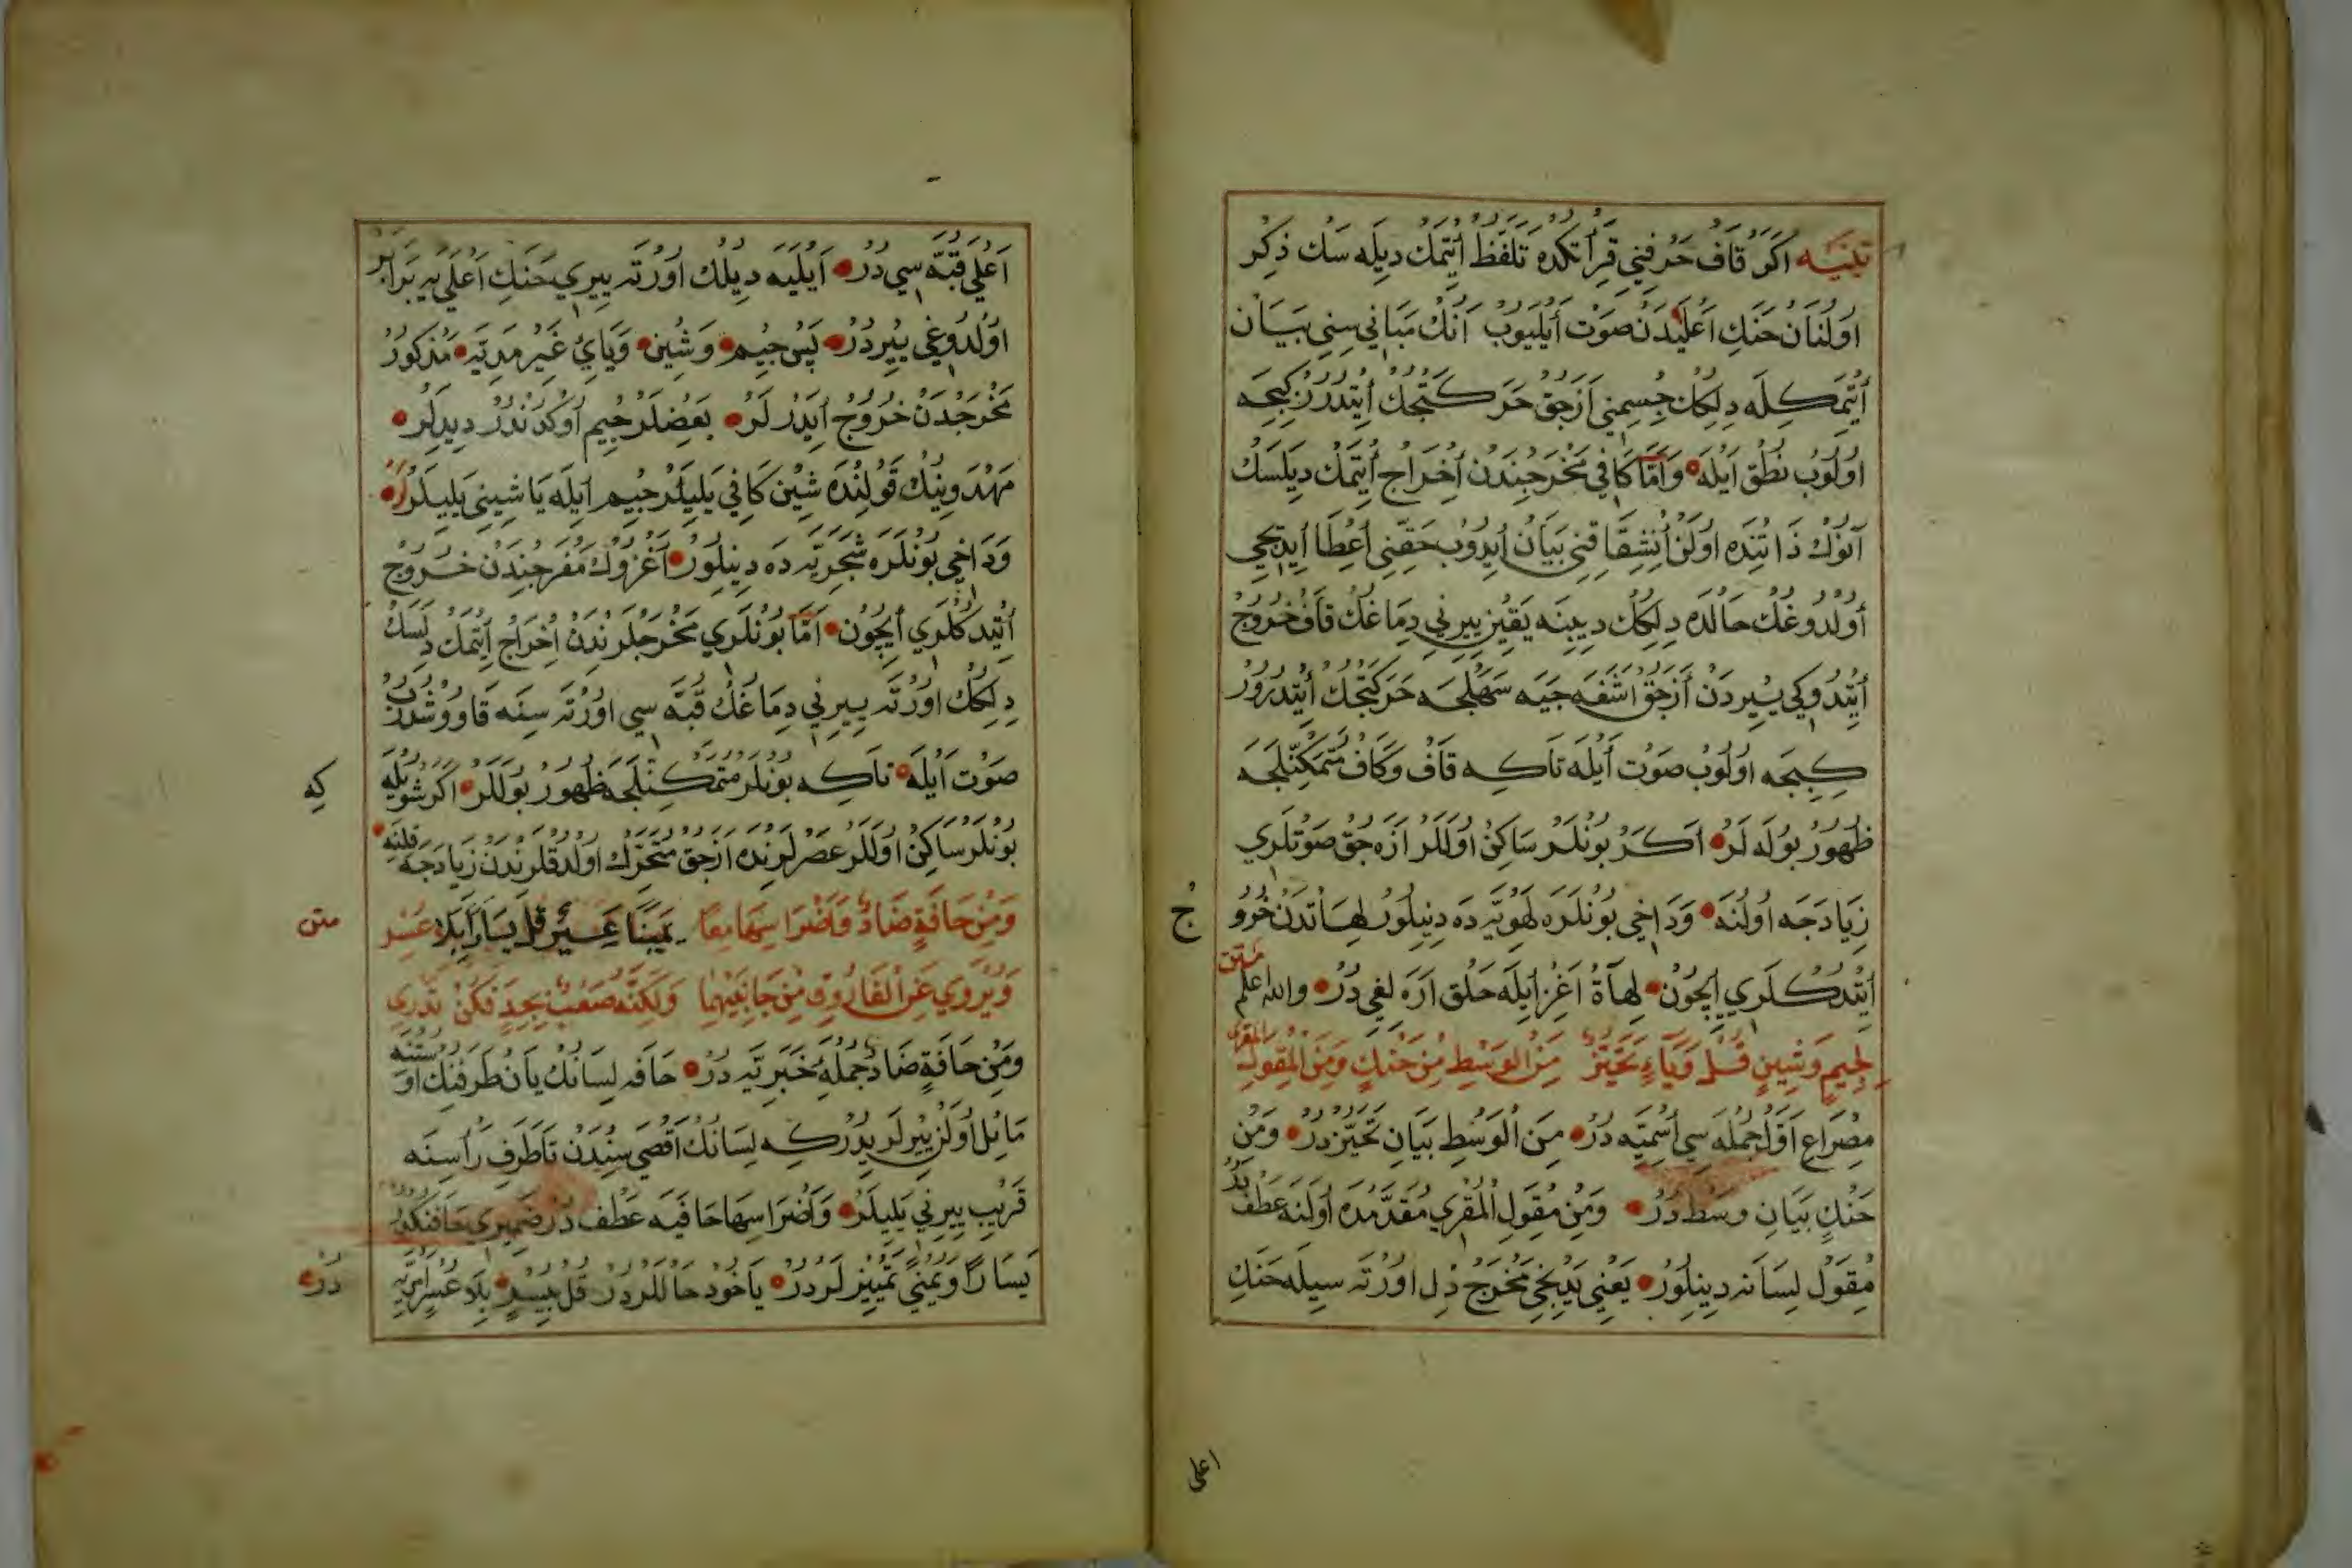 تَنْبِيه اَكَرْ قَافْ حَرْفِنِي قِرَأتَكْدَه تَلَفُّظْ اَيْتَمَكْ دِيلَه سَكْ ذِكِرْ
اَوُلُنَانْ حَنَكِ اَعْلَيْدَنْ صَوْت اَيْلَيُوبْ اَنُكْ مَبَانِي سِنِي بَيَانْ
اَيْتْمَكِلَه دِلِكُكْ جِسْمِنِي اَزْجِقْ حَرَكَتْجَكْ اَيْتْدِرُرْ كِبِجَه
اوُلُوبْ نُطْق اَيْلَه وَاَمَّا كَافِي مَخْرَجِنْدَنْ اِخْرَاجْ اَيْتَمَكْ دِيلَسَكْ
آنُوكْ ذَاتِنْدَه اوُلَنْ اِنْشِقَاقِنِي بَيَانْ اَيْدُوبْ حَقِّنِي اَعْطَا اَيْدِيجِي
اُولْدُوغُكْ حَالْدَه دِلِكُكْ دِيبِنَه يَقِينْ يِيرِنِي دِمَاغُكْ قَافْ خُرُوجْ
اَيْتْدُوكِي يِيرْدَنْ اَزْجِقْ اَشَغَه جِيَه سَهْلِجَه حَرَكَتْجِكْ اَيْتْدِرُورْ
كِبِجَه اوُلُوبْ صَوْت اَيْلَه تَاكِه قَافْ وَكَافْ مُتَمَكِّنْلِجَه
ظُهُورْ بُولَه لَرْ اَكَرْ بُونْلَرْ سَاكِنْ اوُلَلَرْ اَزَه جُقْ صَوْتْلَرِي
زِيَادَجَه اوُلُنَه وَدَاخِي بُونْلَرَه لَهَوِيَّه دَه دِينِلُورْ لَهَاتْدَنْ خُرُو
جْ
اَيْتْدُكْلَرِي اِيچُونْ لَهَاةْ اَغِزْ اِيلَه حَلْق اَرَه لِغِي دُرْ وَاللهُ اَعْلَم
مَتِنْ
لِجِيمٍ وَشِينٍ قُلْ وَيَاءٍ تَحَيُّزْ مِنَ الوَسْطِ مِنْ حَنَكٍ وَمِنْ مِقْوَلِ المُقْرِي
مِصْرَاعِ اَوَّلْ جُمْلَه سِي اِسْمِيَّه دُرْ مِنَ الْوَسْطِ بَيَانِ تَحَيُّزْدُرْ وَمِنْ
حَنَكٍ بَيَانِ وَسْطْدُرْ وَمِنْ مِقْوَلِ الْمُقْرِي مُقَدَّمَدَه اوُلَنَه عَطْفْدُرْ
مِقْوَلْ لِسَانَه دِينِلُورْ يَعْنِي يَدِيْجِي مَخْرَجْ دِلْ اوُرْتَه سِيلَه حَنَكِ
اعلى
اَعْلَي قُبَّه سِي دُرْ اَيْلَيَه دِيلُكْ اوُرْتَه يِيرِي حَنَكِ اَعْلَي يَه بَرَابَرْ
اوُلْدُوغِي يِيرْدُرْ پَسْ جِيمْ وَشِينْ وَيَايْ غَيْرِ مَدِيَّه مَذْكُورْ
مَخْرَجْدَنْ خُرُوجْ اَيْدَرْلَرْ بَعْضِلَرْ جِيمْ اُوكْدُنْدُرْ دِيدِلَرْ
مَهْدَوِينُكْ قَوْلِنْدَه شِينْ كَافِي يَلِيلَرْ جِيمْ اَيلَه يَا شِينِي يَلِيلَرْ
وَدَاخِي بُونْلَرَه شَجَرِيَّه دَه دِينِلُورْ اَغْزُوكْ مَفْرَجِنْدَنْ خُرُوجْ
اَيْتْدِكْلَرِي اِيچُونْ اَمَّا بُونْلَرِي مَخْرَجْلَرِنْدَنْ اِخْرَاجْ اَيْتَمَكْ دِلَسَكْ
دِلِكُكْ اوُرْتَه يِيرِنِي دِمَاغُكْ قُبَّه سِي اوُرْتَه سِنَه قَاوُوشْدُرُبْ
صَوْت اَيْلَه تَاكِه بُونْلَرْ مُتَمَكِّنْلِجَه ظُهُورْ بُولَلَرْ اَكَرْ شُويْلَه
كِه
بُونْلَرْ سَاكِنْ اوُلَلَرْ عَصْرْلَرِنْدَه اَزْجِقْ مُتَحَرِّكْ اوُلْدُقْلَرِنْدَنْ زِيَادَجَه قِلِنَه
وَمِنْ حَافَةٍ ضَادٌ وَاَضْرَاسِهَا مِعَا يَمِينًا عَسِيْرٌ قُلْ يَسَارًا بَلَا عُسْرِ
متن
وَيُرْوِي عَنِ الْفَارُوقِ مِنْ جَانِبَيْهِمَا وَلَكِنَّهُ صَعْبٌ بِجِدٍّ فَكُنْ تَدْرِي
وَمِنْ حَافَةٍ ضَادٌ جُمْلَه خَبَرِيَّه دُرْ حَافَه لِسَانُكْ يَانْ طَرَفِنُكْ اوُسْتِنَه
مَائِلْ اوُلَنْ يِيرْلَرِيدُرْ كِه لِسَانُكْ اَقْصَي سِنْدَنْ تَا طَرَفِ رَأسِنَه
قَرِيبْ يِيرِنِي يَلِيلَرْ وَاَضْرَاسِهَا حَافَيَه عَطْف دُرْ ضَمِيرِي حَافَنُكْدُرْ
يَسَارًا وَيُمْنِي تَمْيِيزْلَرْدُرْ يَاخُودْ حَالْلَرْدُرْ قُلْ بِيُسْرٍ بِلَا عُسْرٍ اَمْرِيَّه
دُرْ